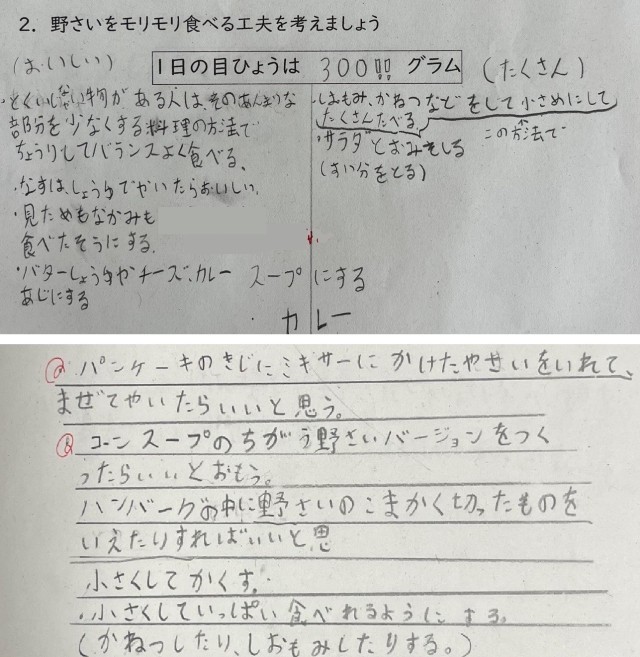 2. 野さいをモリモリ食べる工夫を考えましょう
(おいしい)
1日の目ひょうは 300!! グラム
(たくさん)
・とくいじゃない物がある人は、そのあんまりな
部分を少なくする料理の方法で
ちょうりしてバランスよく食べる、
・なすは、しょうゆでやいたらおいしい。
・見ためもなかみも
食べたそうにする。
・バターしょうゆやチーズ、カレー
あじにする
・しおもみ、かねつなどをして小さめにして
たくさんたべる
この方法で
・サラダとおみそしる
(すい分をとる)
スープにする
カレー
パンケーキのきじにミキサーにかけたやせいをいれて、
まぜてやいたらいいと思う。
コーンスープのちがう野さいバージョンをつく
ったらいいとおもう。
ハンバーグの中に野さいのこまかく切ったものを
いえたりすればいいと思
小さくしてかくす。
・小さくしていっぱい食べれるようにする。
(かねつしたり、しおもみしたりする。)